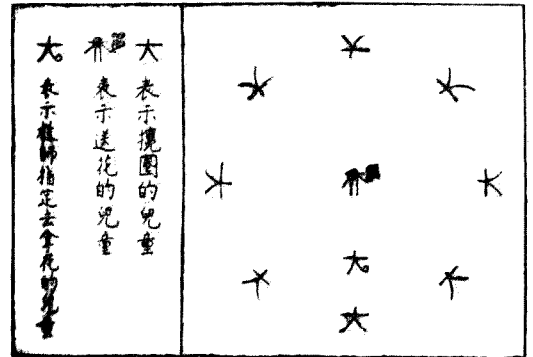 表示圍的兒童
表示送花的兒童
表示教師指定去拿花的兒童